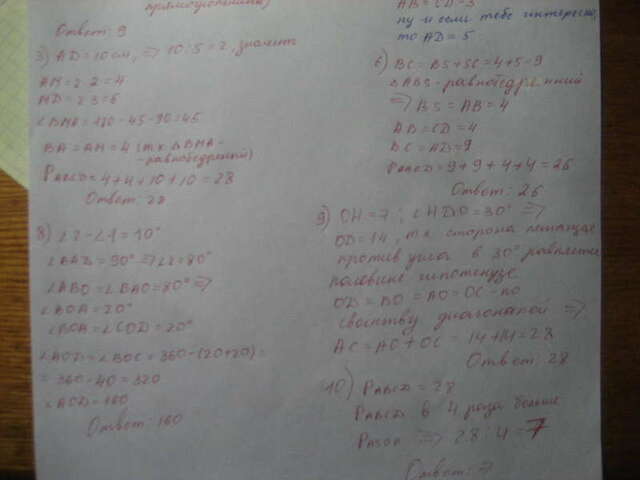 прямоугольника)
Ответ: 9
3) AD = 10 см, => 10 : 5 = 2, значит
AM = 2·2 = 4
MD = 2·3 = 6
∠BMA = 180 - 45 - 90 = 45
BA = AM = 4 (т.к. ΔBMA -
- равнобедренный)
PABCD = 4 + 4 + 10 + 10 = 28
Ответ: 28
8) ∠2 - ∠1 = 10°
= 90° => ∠2 = 80°
∠ABO = ∠BAO = 80° =>
∠BOA = 20°
∠BOA = ∠COD = 20°
∠AOD = ∠BOC = 360 - (20+20) =
= 360 - 40 = 320
∠AOD = 160
Ответ: 160
AB = CD = 3
ну и если тебе интересно,
то AD = 5
6) BC = BS + SC = 4 + 5 = 9
ΔABS - равнобедренный
=> BS = AB = 4
AB = CD = 4
BC = AD = 9
PABCD = 9 + 9 + 4 + 4 = 26
Ответ: 26
9) OH = 7; ∠HDO = 30° =>
OD = 14, т.к. сторона лежащая
против угла в 30° равняется
половине гипотенузе
OD = BO = AO = OC - по
свойству диагоналей =>
AC = AO + OC = 14 + 14 = 28
Ответ: 28
10) PABCD = 28
PABCD в 4 раза больше
=> 28 : 4 = 7
Ответ: 7